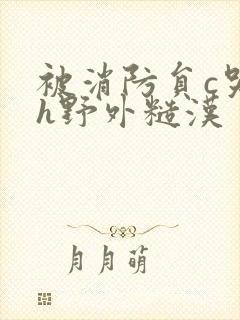 被消防负c哭
h野外糙漢
月月萌